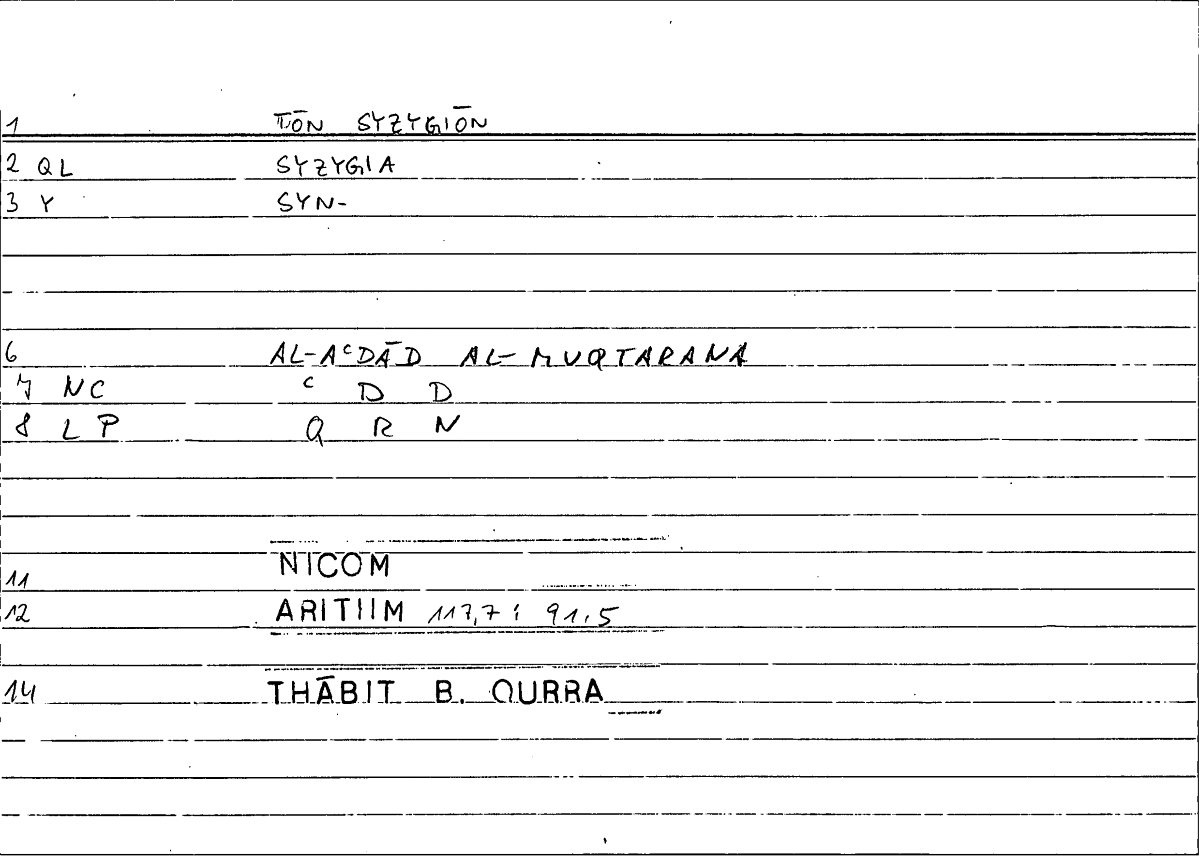 1 TŌN SYZYGIŌN
2 QL SYZYGIA
3 Y SYN-
6 AL-AᶜDĀD AL-MUQTARANA
7 NC ᶜ D D
8 LP Q R N
11 NICOM
12 ARITIIM 117,7 ; 91,5
14 THĀBIT B. QURRA